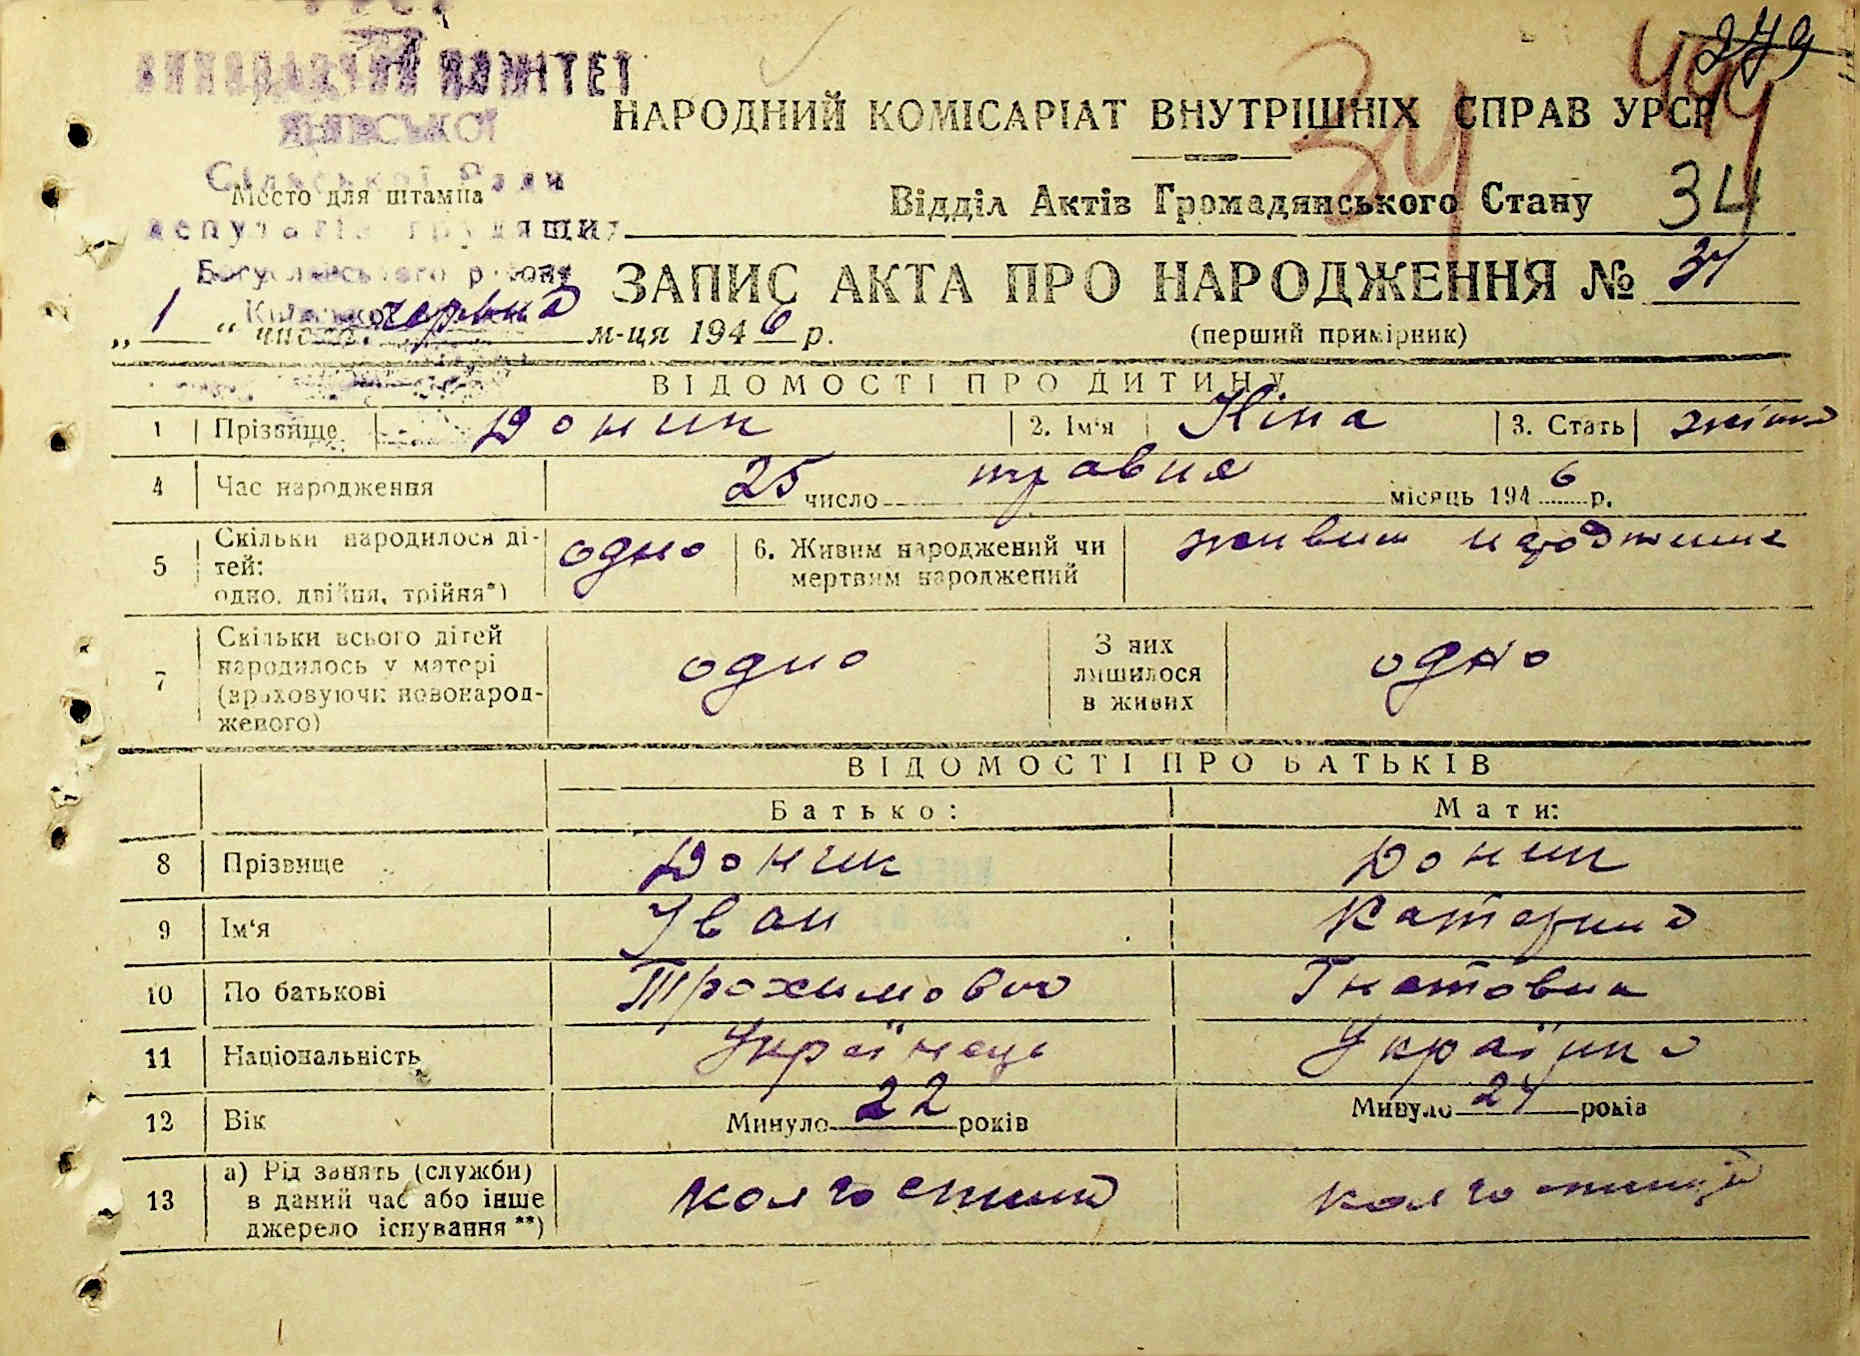 279
ВИКОНАВЧИЙ КОМІТЕТ
499
НАРОДНИЙ КОМІСАРІАТ ВНУТРІШНІХ СПРАВ УРСР
34
Сільської Ради
Место для штампа
Відділ Актів Громадянського Стану
34
депутатів трудящих
Богуславського району
ЗАПИС АКТА ПРО НАРОДЖЕННЯ № 34
„ 1 “ числа червня м-ця 1946 р.
(перший примірник)
ВІДОМОСТІ ПРО ДИТИНУ
1 Прізвище Доник 2. Ім'я Ніна 3. Стать жіноча
4 Час народження 25 число травня місяць 1946 р.
5 Скільки народилося ді-
тей:
одно, двійня, трійня*) одно
6. Живим народжений чи
мертвим народжений живим народжене
7 Скільки всього дітей
народилось у матері
(враховуючи новонарод-
женого) одно
З них
лишилося
в живих одно
ВІДОМОСТІ ПРО БАТЬКІВ
Батько: Мати:
8 Прізвище Доник Доник
9 Ім'я Іван Катерина
10 По батькові Трохимович Гнатовна
11 Національність Українець Українка
12 Вік Минуло 22 років Минуло 24 років
13 а) Рід занять (служби)
в даний час або інше
джерело існування **) колгоспник колгоспниця